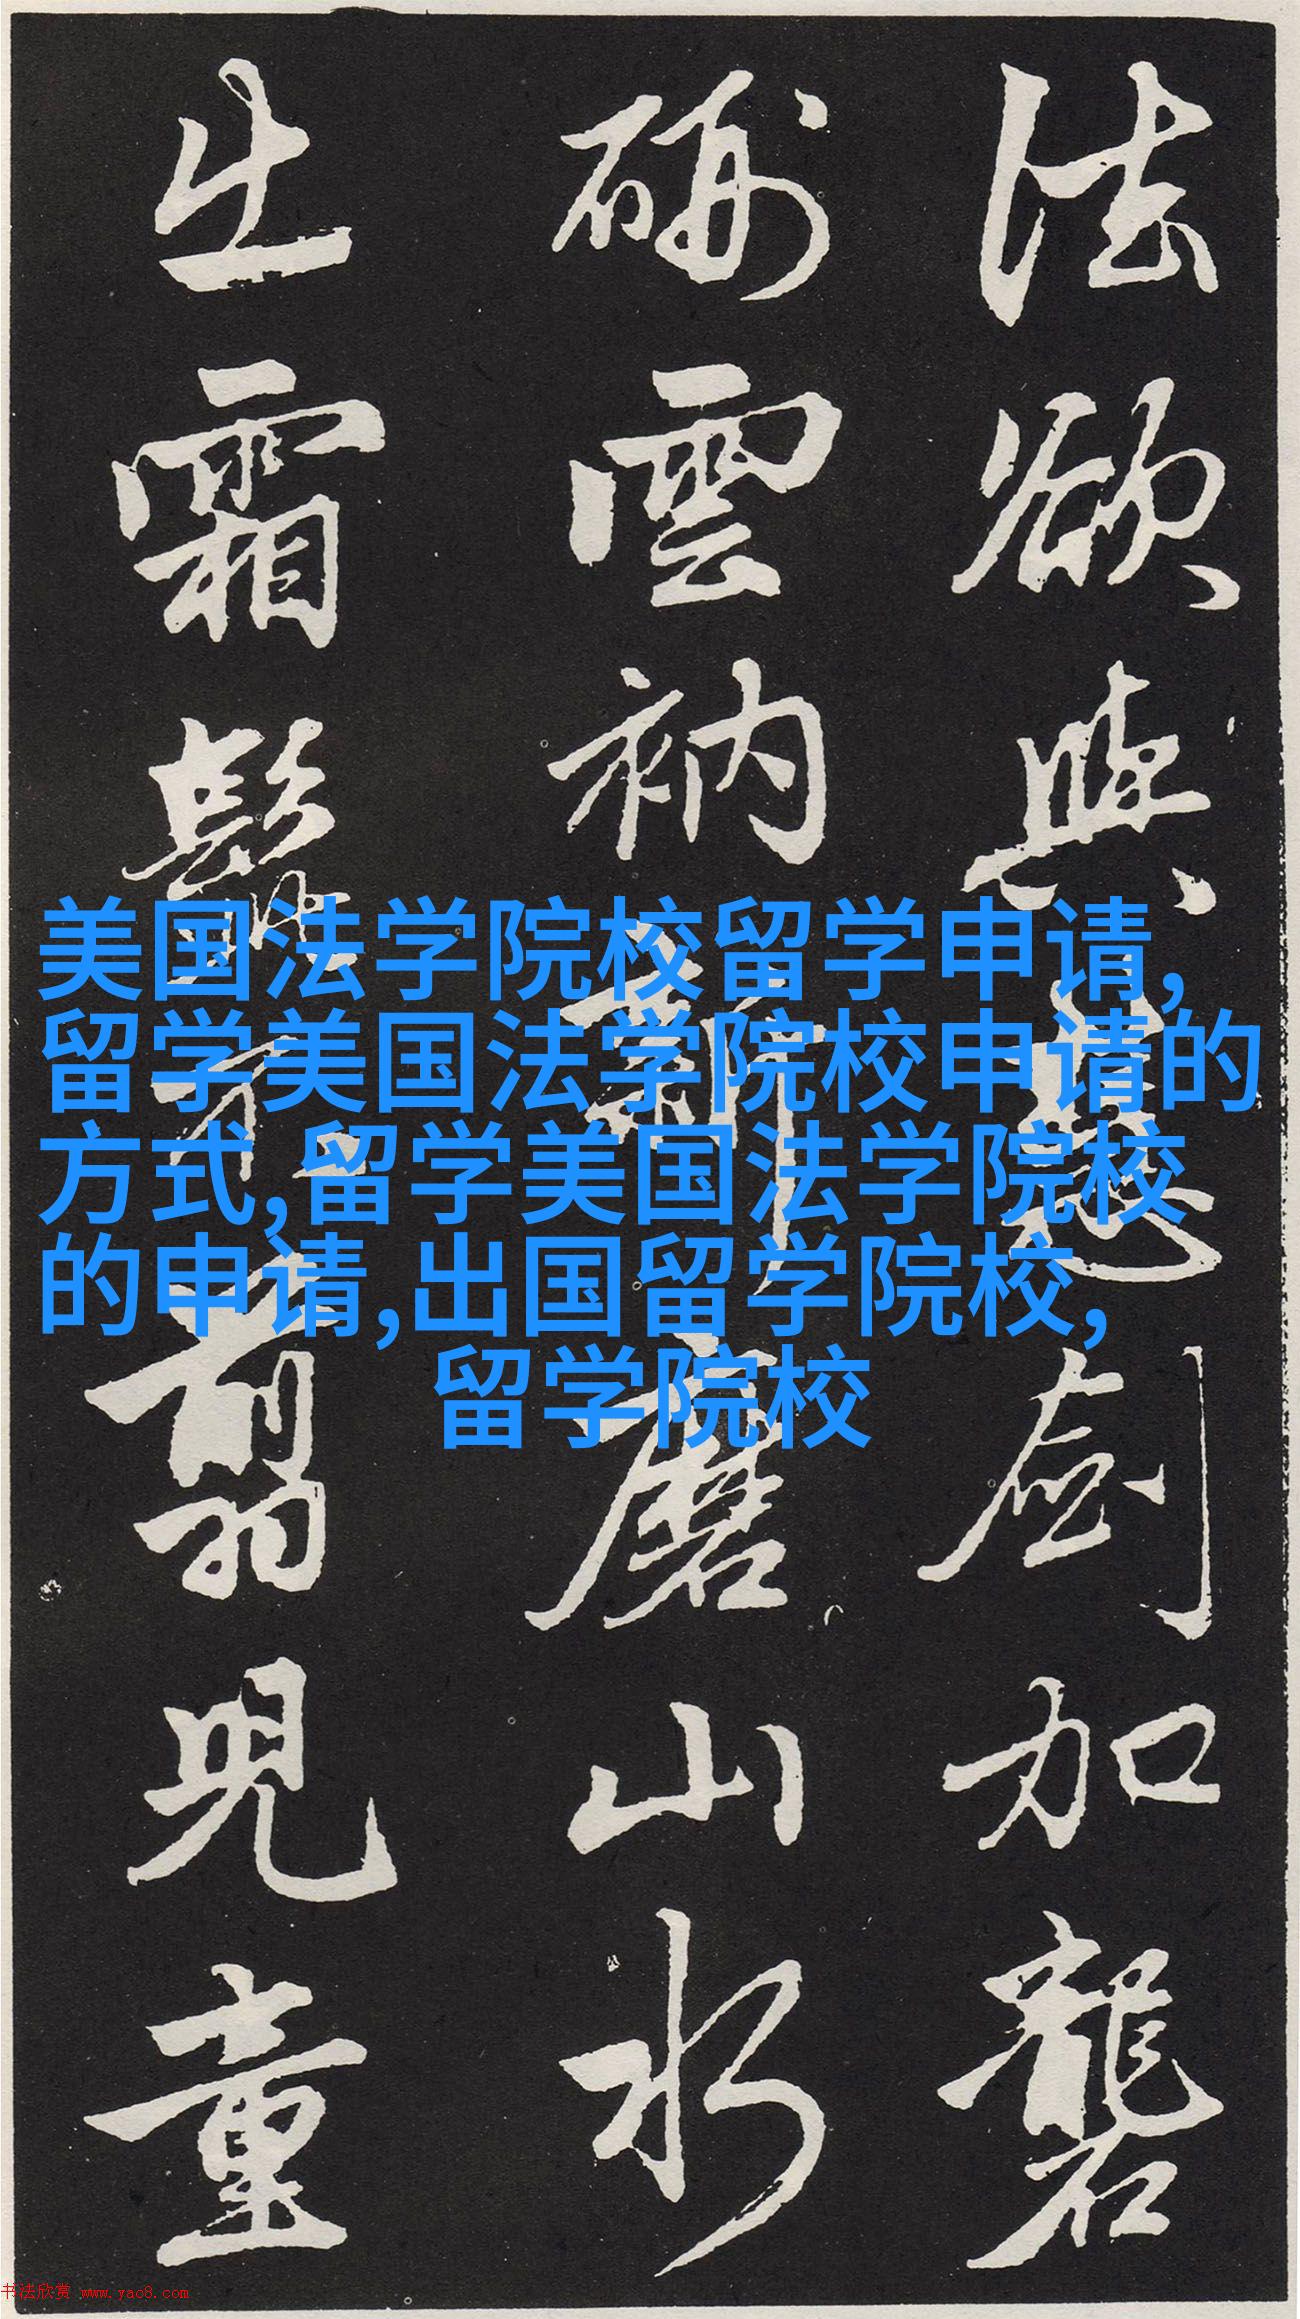 法欲與慧劍加礱
硎雲衲新磨山水
出霜髭不翦兒童
美国法学院校留学申请,
留学美国法学院校申请的
方式,留学美国法学院校
的申请,出国留学院校,
留学院校
书法欣赏 www.yac8.com